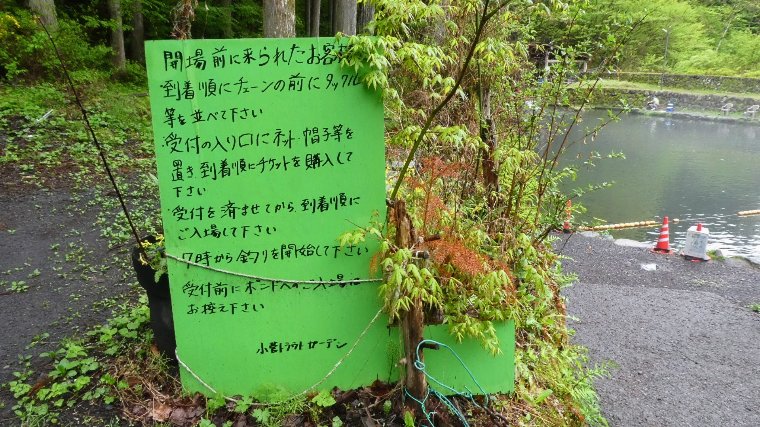 開場前に来られたお客
到着順にチェーンの前にタックル
等を並べて下さい
受付の入り口にネット・帽子等を
置き、到着順にチケットを購入して
下さい
受付を済ませてから、到着順に
ご入場して下さい
7時から釣りを開始して下さい
受付前にポンドへのご入場は
お控え下さい
小菅トラウトガーデン